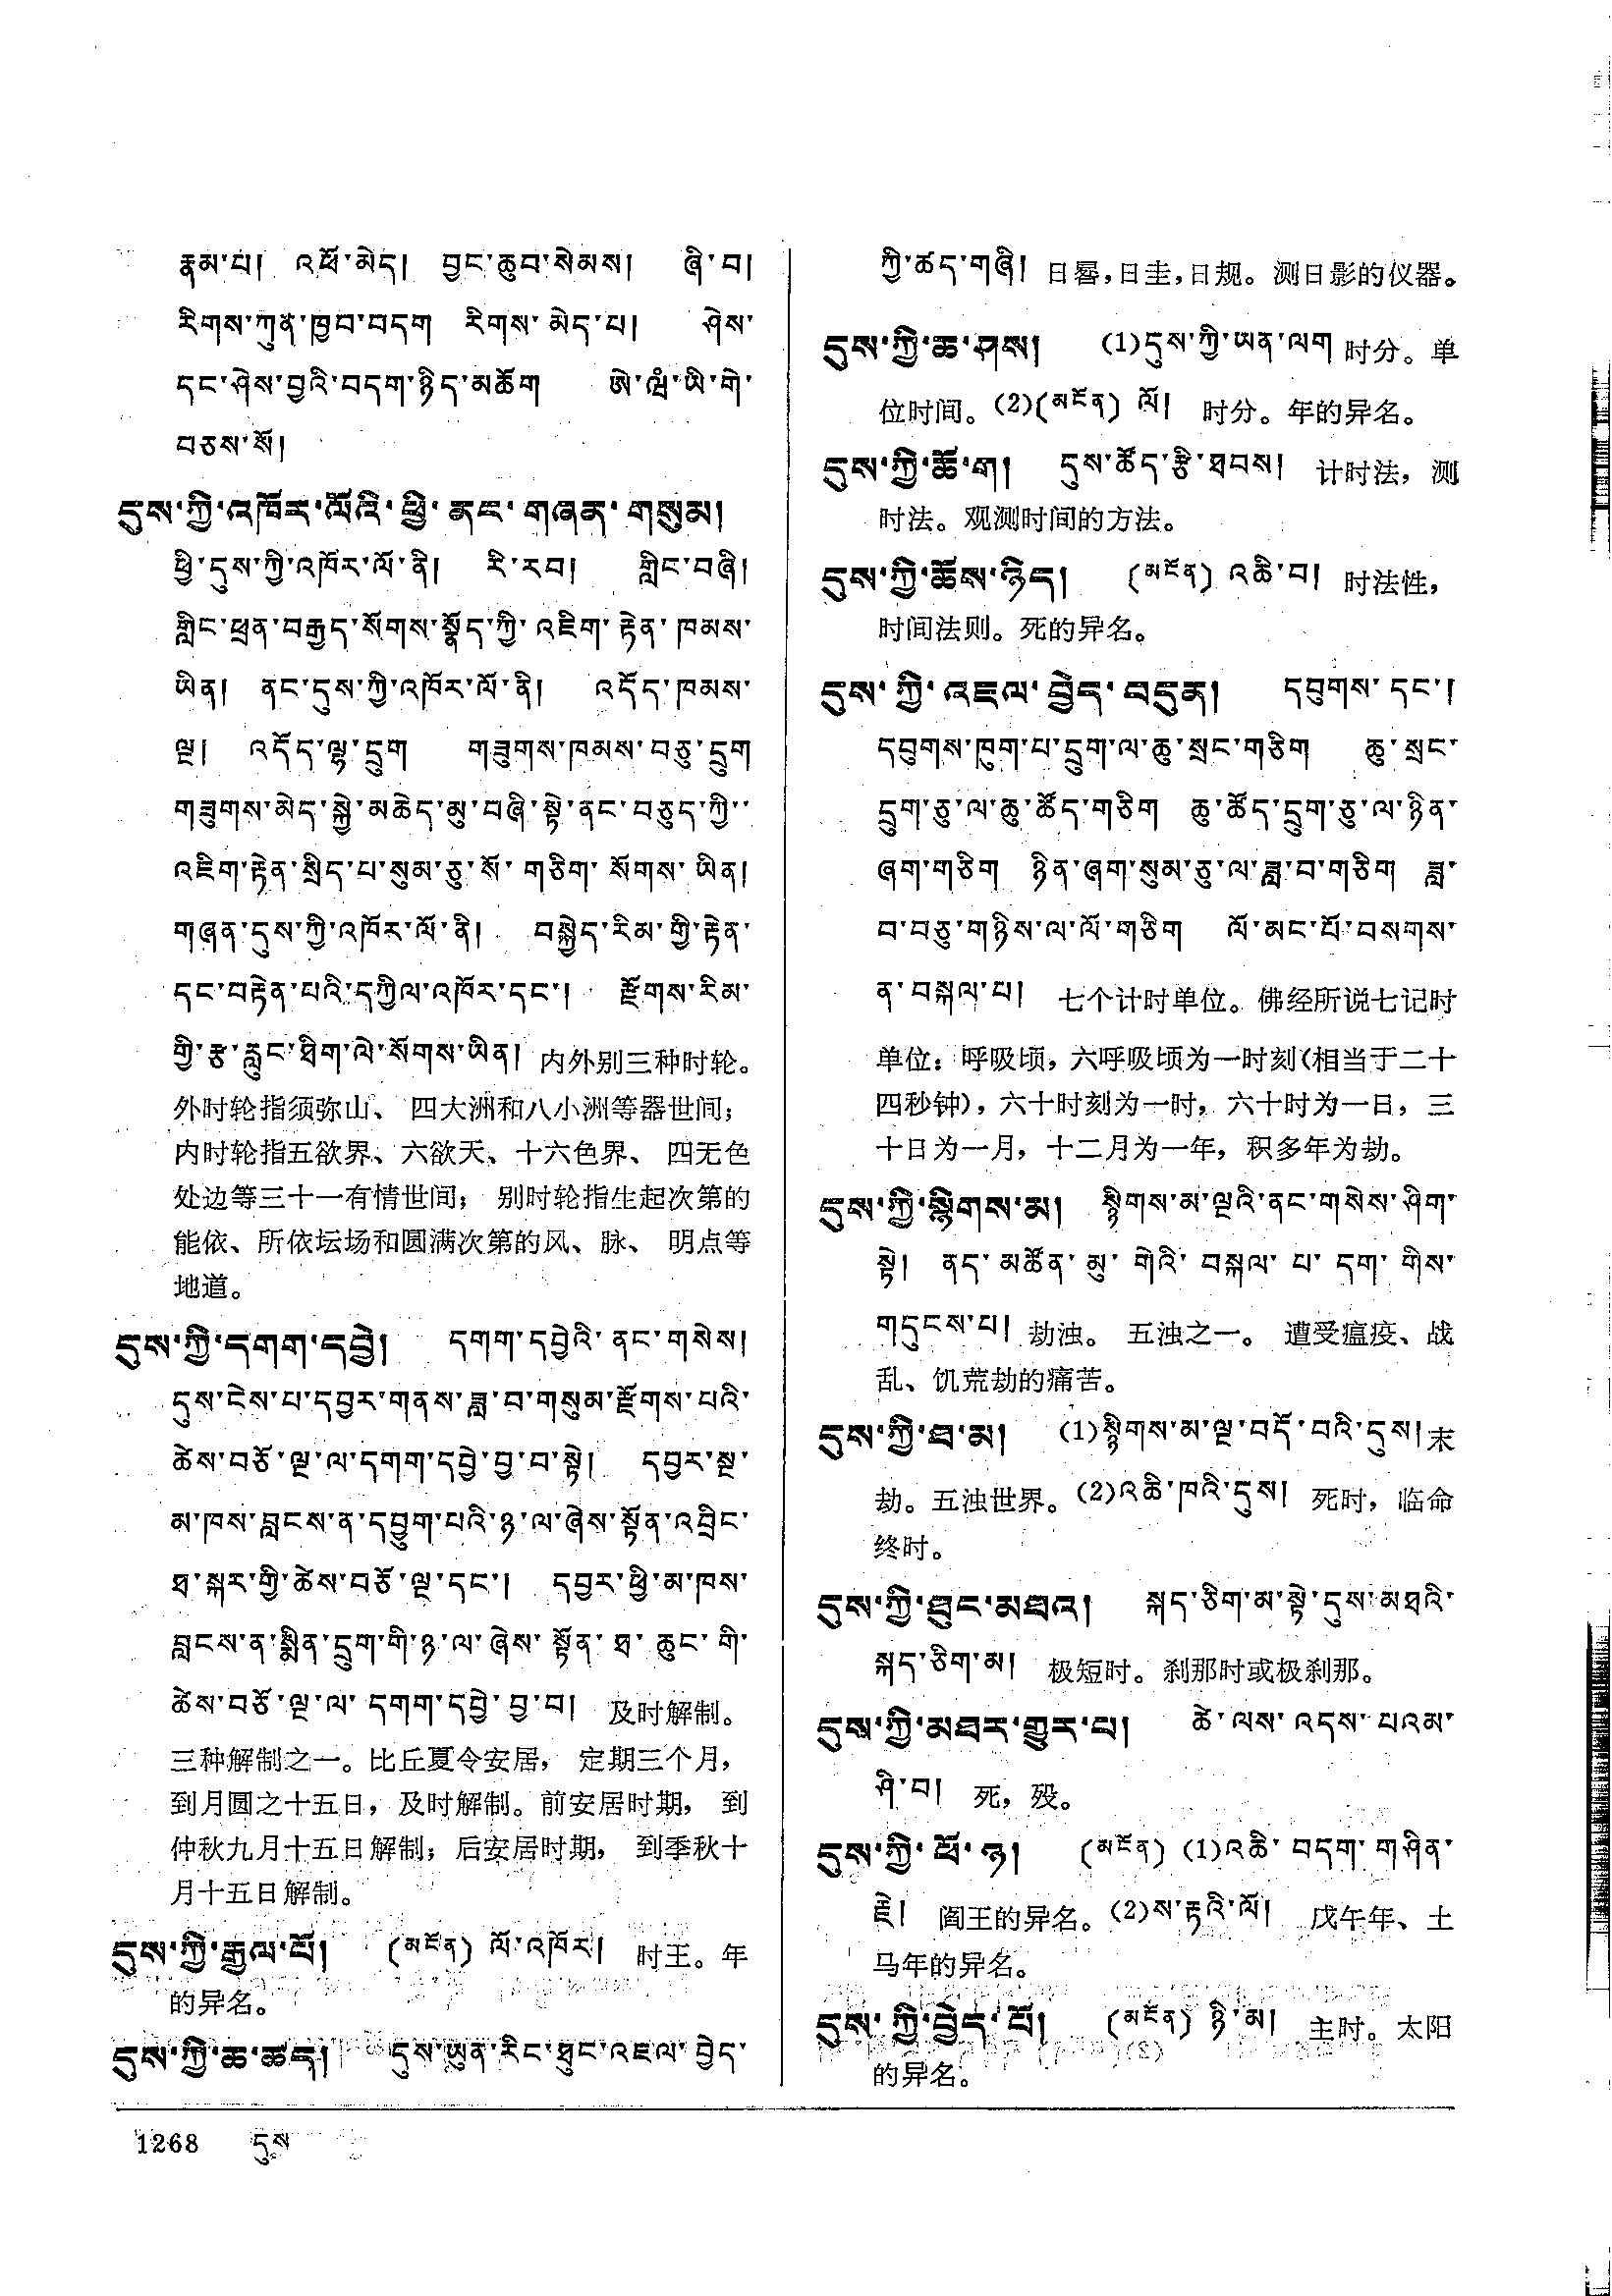 རྣམ་པ། འཕོ་མེད། བྱང་ཆུབ་སེམས། ཞི་བ།
རིགས་ཀུན་ཁྱབ་བདག རིགས་མེད་པ། ཤེས་
དང་ཤེས་བྱའི་བདག་ཉིད་མཆོག ཨེ་ཝཾ་ཡི་གེ་
བཅས་སོ།
དུས་ཀྱི་འཁོར་ལོའི་ཕྱི་ནང་གཞན་གསུམ།
ཕྱི་དུས་ཀྱི་འཁོར་ལོ་ནི། རི་རབ། གླིང་བཞི།
གླིང་ཕྲན་བརྒྱད་སོགས་སྣོད་ཀྱི་འཇིག་རྟེན་ཁམས་
ཡིན། ནང་དུས་ཀྱི་འཁོར་ལོ་ནི། འདོད་ཁམས་
ལྔ། འདོད་ལྷ་དྲུག གཟུགས་ཁམས་བཅུ་དྲུག
གཟུགས་མེད་སྐྱེ་མཆེད་མུ་བཞི་སྟེ་ནང་བཅུད་ཀྱི་
འཇིག་རྟེན་སྲིད་པ་སུམ་ཅུ་སོ་གཅིག་སོགས་ཡིན།
གཞན་དུས་ཀྱི་འཁོར་ལོ་ནི། བསྐྱེད་རིམ་གྱི་རྟེན་
དང་བརྟེན་པའི་དཀྱིལ་འཁོར་དང་། རྫོགས་རིམ་
གྱི་རྩ་རླུང་ཐིག་ལེ་སོགས་ཡིན། 内外别三种时轮。
外时轮指须弥山、四大洲和八小洲等器世间；
内时轮指五欲界、六欲天、十六色界、四无色
处边等三十一有情世间；别时轮指生起次第的
能依、所依坛场和圆满次第的风、脉、明点等
地道。
དུས་ཀྱི་དགག་དབྱེ། དགག་དབྱེའི་ནང་གསེས།
དུས་ངེས་པ་དབྱར་གནས་ཟླ་བ་གསུམ་རྫོགས་པའི་
ཚེས་བཅོ་ལྔ་ལ་དགག་དབྱེ་བྱ་བ་སྟེ། དབྱར་སྔ་
མ་ཁས་བླངས་ན་དབྱུག་པའི་ཉ་ལ་ཞེས་སྟོན་འབྲིང་
ཐ་སྐར་གྱི་ཚེས་བཅོ་ལྔ་དང་། དབྱར་ཕྱི་མ་ཁས་
བླངས་ན་སྨིན་དྲུག་གི་ཉ་ལ་ཞེས་སྟོན་ཐ་ཆུང་གི་
ཚེས་བཅོ་ལྔ་ལ་དགག་དབྱེ་བྱ་བ། 及时解制。
三种解制之一。比丘夏令安居，定期三个月，
到月圆之十五日，及时解制。前安居时期，到
仲秋九月十五日解制；后安居时期，到季秋十
月十五日解制。
དུས་ཀྱི་རྒྱལ་པོ། (མངོན) ལོ་འཁོར། 时王。年
的异名。
དུས་ཀྱི་ཆ་ཚད། དུས་ཡུན་རིང་ཐུང་འཇལ་བྱེད་
ཀྱི་ཚད་གཞི། 日晷，日圭，日规。测日影的仪器。
དུས་ཀྱི་ཆ་ཤས། (1)དུས་ཀྱི་ཡན་ལག 时分。单
位时间。(2)(མངོན) ལོ། 时分。年的异名。
དུས་ཀྱི་ཆོ་ག། དུས་ཚོད་རྩི་ཐབས། 计时法，测
时法。观测时间的方法。
དུས་ཀྱི་ཆོས་ཉིད། (མངོན) འཆི་བ། 时法性，
时间法则。死的异名。
དུས་ཀྱི་འཇལ་བྱེད་བདུན། དབུགས་དང་།
དབུགས་ཁུག་པ་དྲུག་ལ་ཆུ་སྲང་གཅིག ཆུ་སྲང་
དྲུག་ཅུ་ལ་ཆུ་ཚོད་གཅིག ཆུ་ཚོད་དྲུག་ཅུ་ལ་ཉིན་
ཞག་གཅིག ཉིན་ཞག་སུམ་ཅུ་ལ་ཟླ་བ་གཅིག ཟླ་
བ་བཅུ་གཉིས་ལ་ལོ་གཅིག ལོ་མང་པོ་བསགས་
ན་བསྐལ་པ། 七个计时单位。佛经所说七记时
单位：呼吸顷，六呼吸顷为一时刻(相当于二十
四秒钟)，六十时刻为一时，六十时为一日，三
十日为一月，十二月为一年，积多年为劫。
དུས་ཀྱི་སྙིགས་མ། སྙིགས་མ་ལྔའི་ནང་གསེས་ཤིག་
སྟེ། ནད་མཚོན་མུ་གེའི་བསྐལ་པ་དག་གིས་
གདུངས་པ། 劫浊。五浊之一。遭受瘟疫、战
乱、饥荒劫的痛苦。
དུས་ཀྱི་ཐ་མ། (1)སྙིགས་མ་ལྔ་བདོ་བའི་དུས། 末
劫。五浊世界。(2)འཆི་ཁའི་དུས། 死时，临命
终时。
དུས་ཀྱི་ཐུང་མཐའ། སྐད་ཅིག་མ་སྟེ་དུས་མཐའི་
སྐད་ཅིག་མ། 极短时。刹那时或极刹那。
དུས་ཀྱི་མཐར་གྱུར་པ། ཚེ་ལས་འདས་པའམ་
ཤི་བ། 死，殁。
དུས་ཀྱི་ཕོ་ཉ། (མངོན) (1)འཆི་བདག་གཤིན་
རྗེ། 阎王的异名。(2)ས་རྟའི་ལོ། 戊午年、土
马年的异名。
དུས་ཀྱི་བྱེད་པོ། (མངོན) ཉི་མ། 主时。太阳
的异名。
1268 དུས